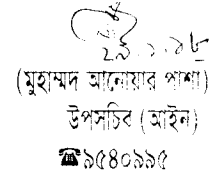 (মুহাম্মদ আনোয়ার পাশা)
উপসচিব (আইন)
☎৯৫৪০৯৯৫